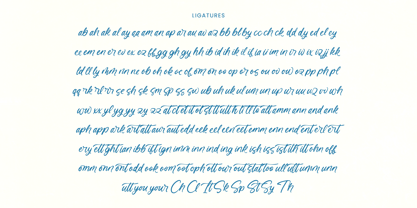 LIGATURES
ab ah ak al ay aa am an ap ar au av az bb bl by cc ch ck dd dy ed el ey
ee em en er ev ex ez ff gg gh gy hh ib id ih ik il if ia ii im in ir iv ix izz jj kk
ld ll ly mm rin ne ob oh ok oc of om on oo op or os ou ov ow oz pp ph pl
qq rk rl rr se sh sk sm sp ss sw ub uh uk ul um un up ur uu uz vv wh
ww xx yl yy yz zz att ct et it ot st tt utt h ti tt la alt amm ann and ank
aph app ark art att aur aut edd eek eel een eet emm enn end ent erl ert
ery ett ght ian ibb ift ign imm inn ind ing ink ish iss ist ith itt ohn off
omm onn ont odd ook oom oot oph ott our out slat too ull ult umm unn
utt you your Ch Cl It Sk Sp St Sy Th